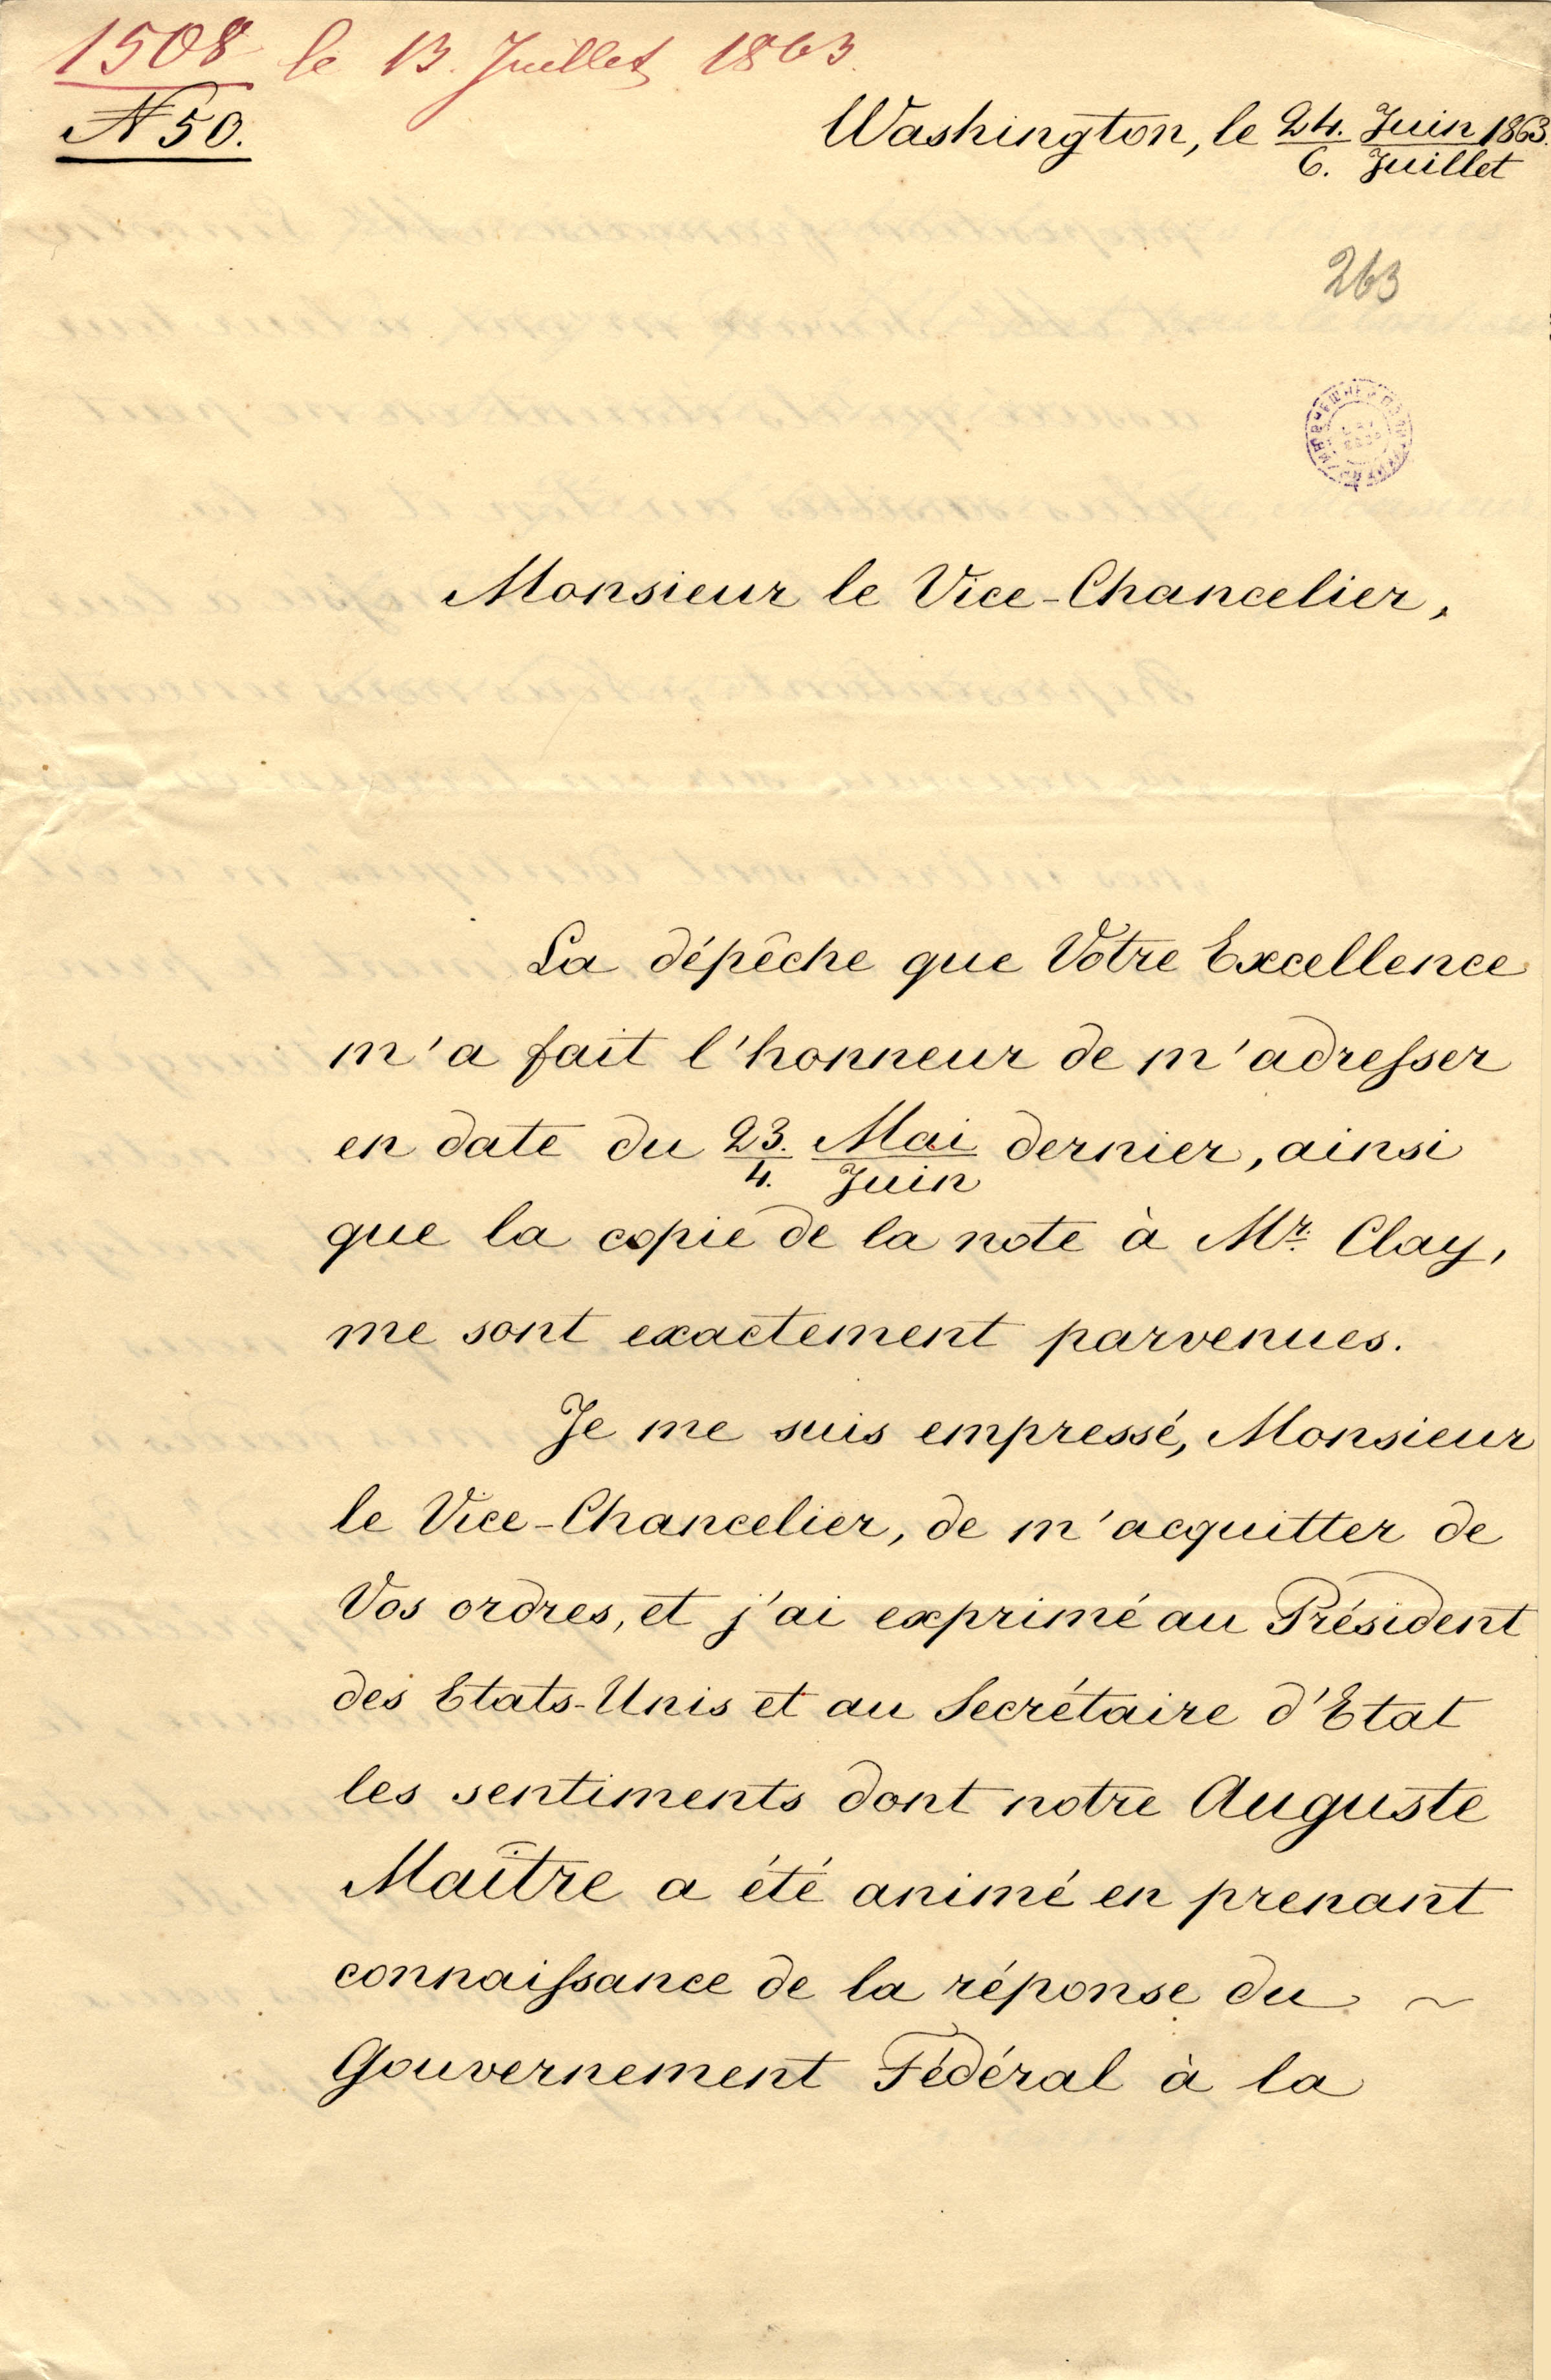 1508 le 13. Juillet 1863.
N 50.
Washington, le 24. Juin 1863.
6. Juillet
263
Monsieur le Vice-Chancelier,
La dépêche que Votre Excellence
m'a fait l'honneur de m'adresser
en date du 23. Mai dernier, ainsi
4. Juin
que la copie de la note à Mr. Clay,
me sont exactement parvenues.
Je me suis empressé, Monsieur
le Vice-Chancelier, de m'acquitter de
Vos ordres, et j'ai exprimé au Président
des Etats-Unis et au Secrétaire d'Etat
les sentiments dont notre Auguste
Maître a été animé en prenant
connaissance de la réponse du ~
Gouvernement Fédéral à la